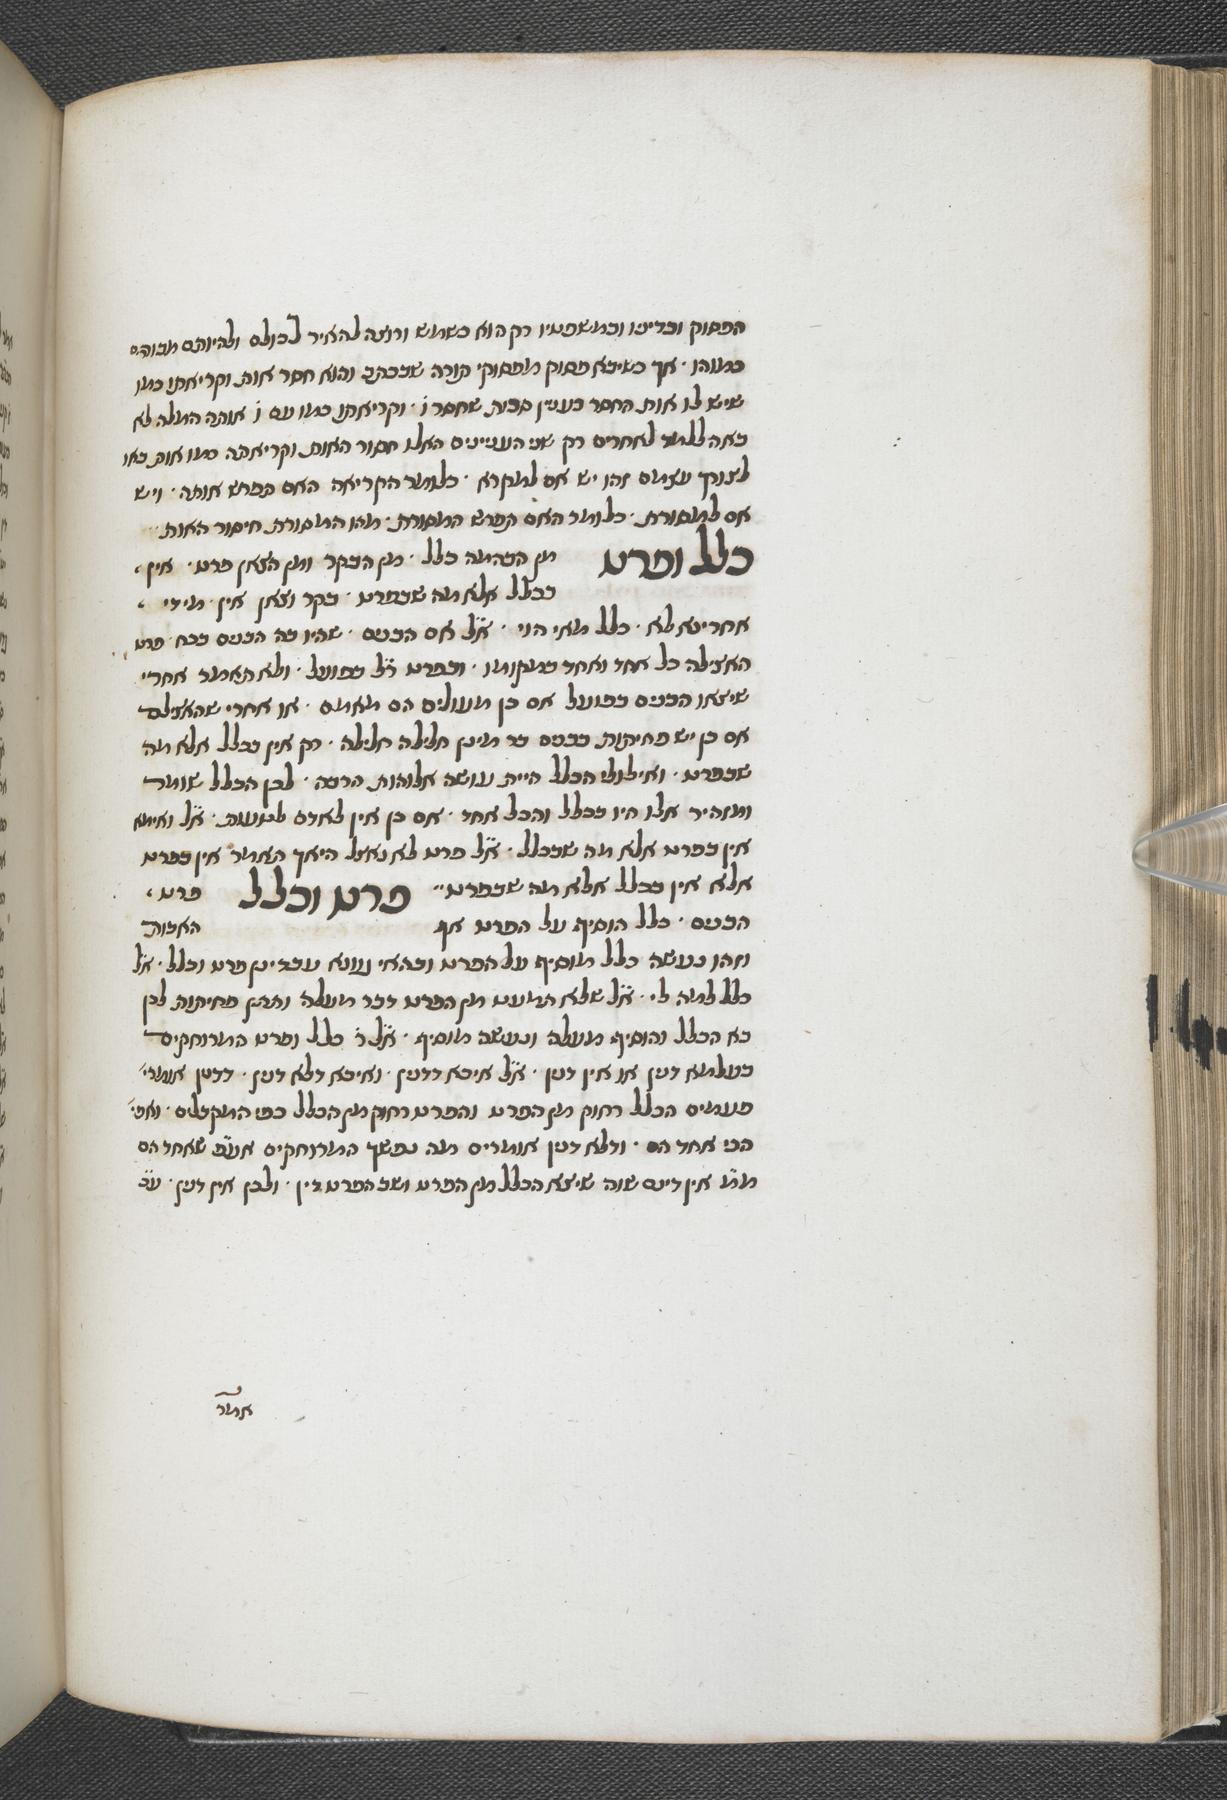 הפסוק ובדינו ובמשפטיו רק הוא כשמש ורוצה להאיר לכולם ולהיותם מבורים
כמוהו · אך כשיבא פסוק מפסוקי תורה שבכתב והוא חסר אות וקריאתו כמו
שיש לו אות החסר כענין סכות שחסר ו · וקריאתו כמו עם ו אותה המלה לא
באה ללמד לאחרים רק שני העניינים האלו חסור האות וקריאתה כמו אות באו
לצורך עצמם וזהו יש אם למקרא · כלומר הקריאה האם תפרש אותה · ויש
אם למסורת · כלומר האם תפרש המסורת · מהו המסורת חיסור האות ··
כלל ופרט מן הבהמה כלל · מן הבקר ומן הצאן פרט · אין
בכלל אלא מה שבפרט · בקר וצאן אין · מידי
אחרינא לא · כלל מאי הוי · א״ל אם הבנים · שהיו בה הבנים בכח · פרט
האצילה כל אחד ואחד במקומו · ובפרט ר״ל בפועל · ולא תאמר אחרי
שיצאו הבנים בפועל אם כן מעולים הם מאמם · או אחרי שהאצילם
אם כן יש פחיתות בבנים בר מינן חלילה חלילה · רק אין בכלל אלא מה
שבפרט · ואילולי הכלל היית עושה אלוהות הרבה · לכן הכלל שומר
ומזהיר אלו היו בכלל והכל אחד · אם כן אין לאדם לטעות · א״ל ואימא
אין בפרט אלא מה שבכלל · א״ל פרט לא נאצל היאך תאמר אין בפרט
אלא אין בכלל אלא מה שבפרט ·· פרט וכלל פרט
הבנים · כלל הוסיף על הפרט אף האבות
וזהו נעשה כלל מוסיף על הפרט ובהאי גוונא עבדינן פרט וכלל · א״ל
כלל למה לי · א״ל שלא תטעם מן הפרט דבר מעלה ותתן פחיתות לכן
בא הכלל והוסיף מעלה ונעשה מוסיף · א״ל ר׳ כלל ופרט המרוחקים
בעלמא דנין או אין דנין · א״ל איכא דדנין · ואיכא דלא דנין · דדנין אומרי׳
פעמים הכלל רחוק מן הפרט והפרט רחוק מן הכלל כפי המקבלים · ואפי׳
הכי אחד הם · ודלא דנין אומרים מה נפשך המרוחקים אע״פ שאחד הם
מ״מ אין דינם שוה שיצא הכלל מן הפרט ושב הפרט דין · ולכן אין דנין · ע״כ
אמר